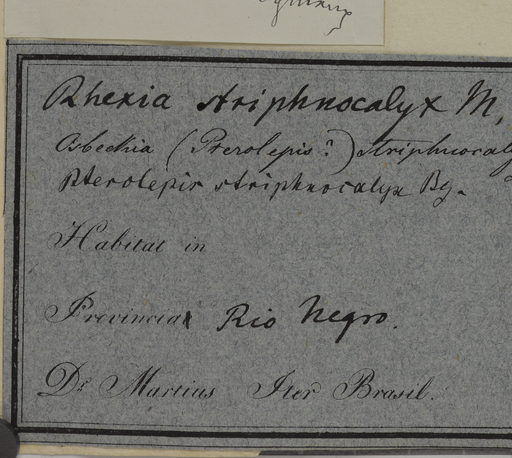 Rhexia striphnocalyx M,
Osbeckia (Pterolepis?) striphnocaly
Pterolepis striphnocalyx Bg.
Habitat in
Provincia Rio Negro.
Dr Martius Iter Brasil.